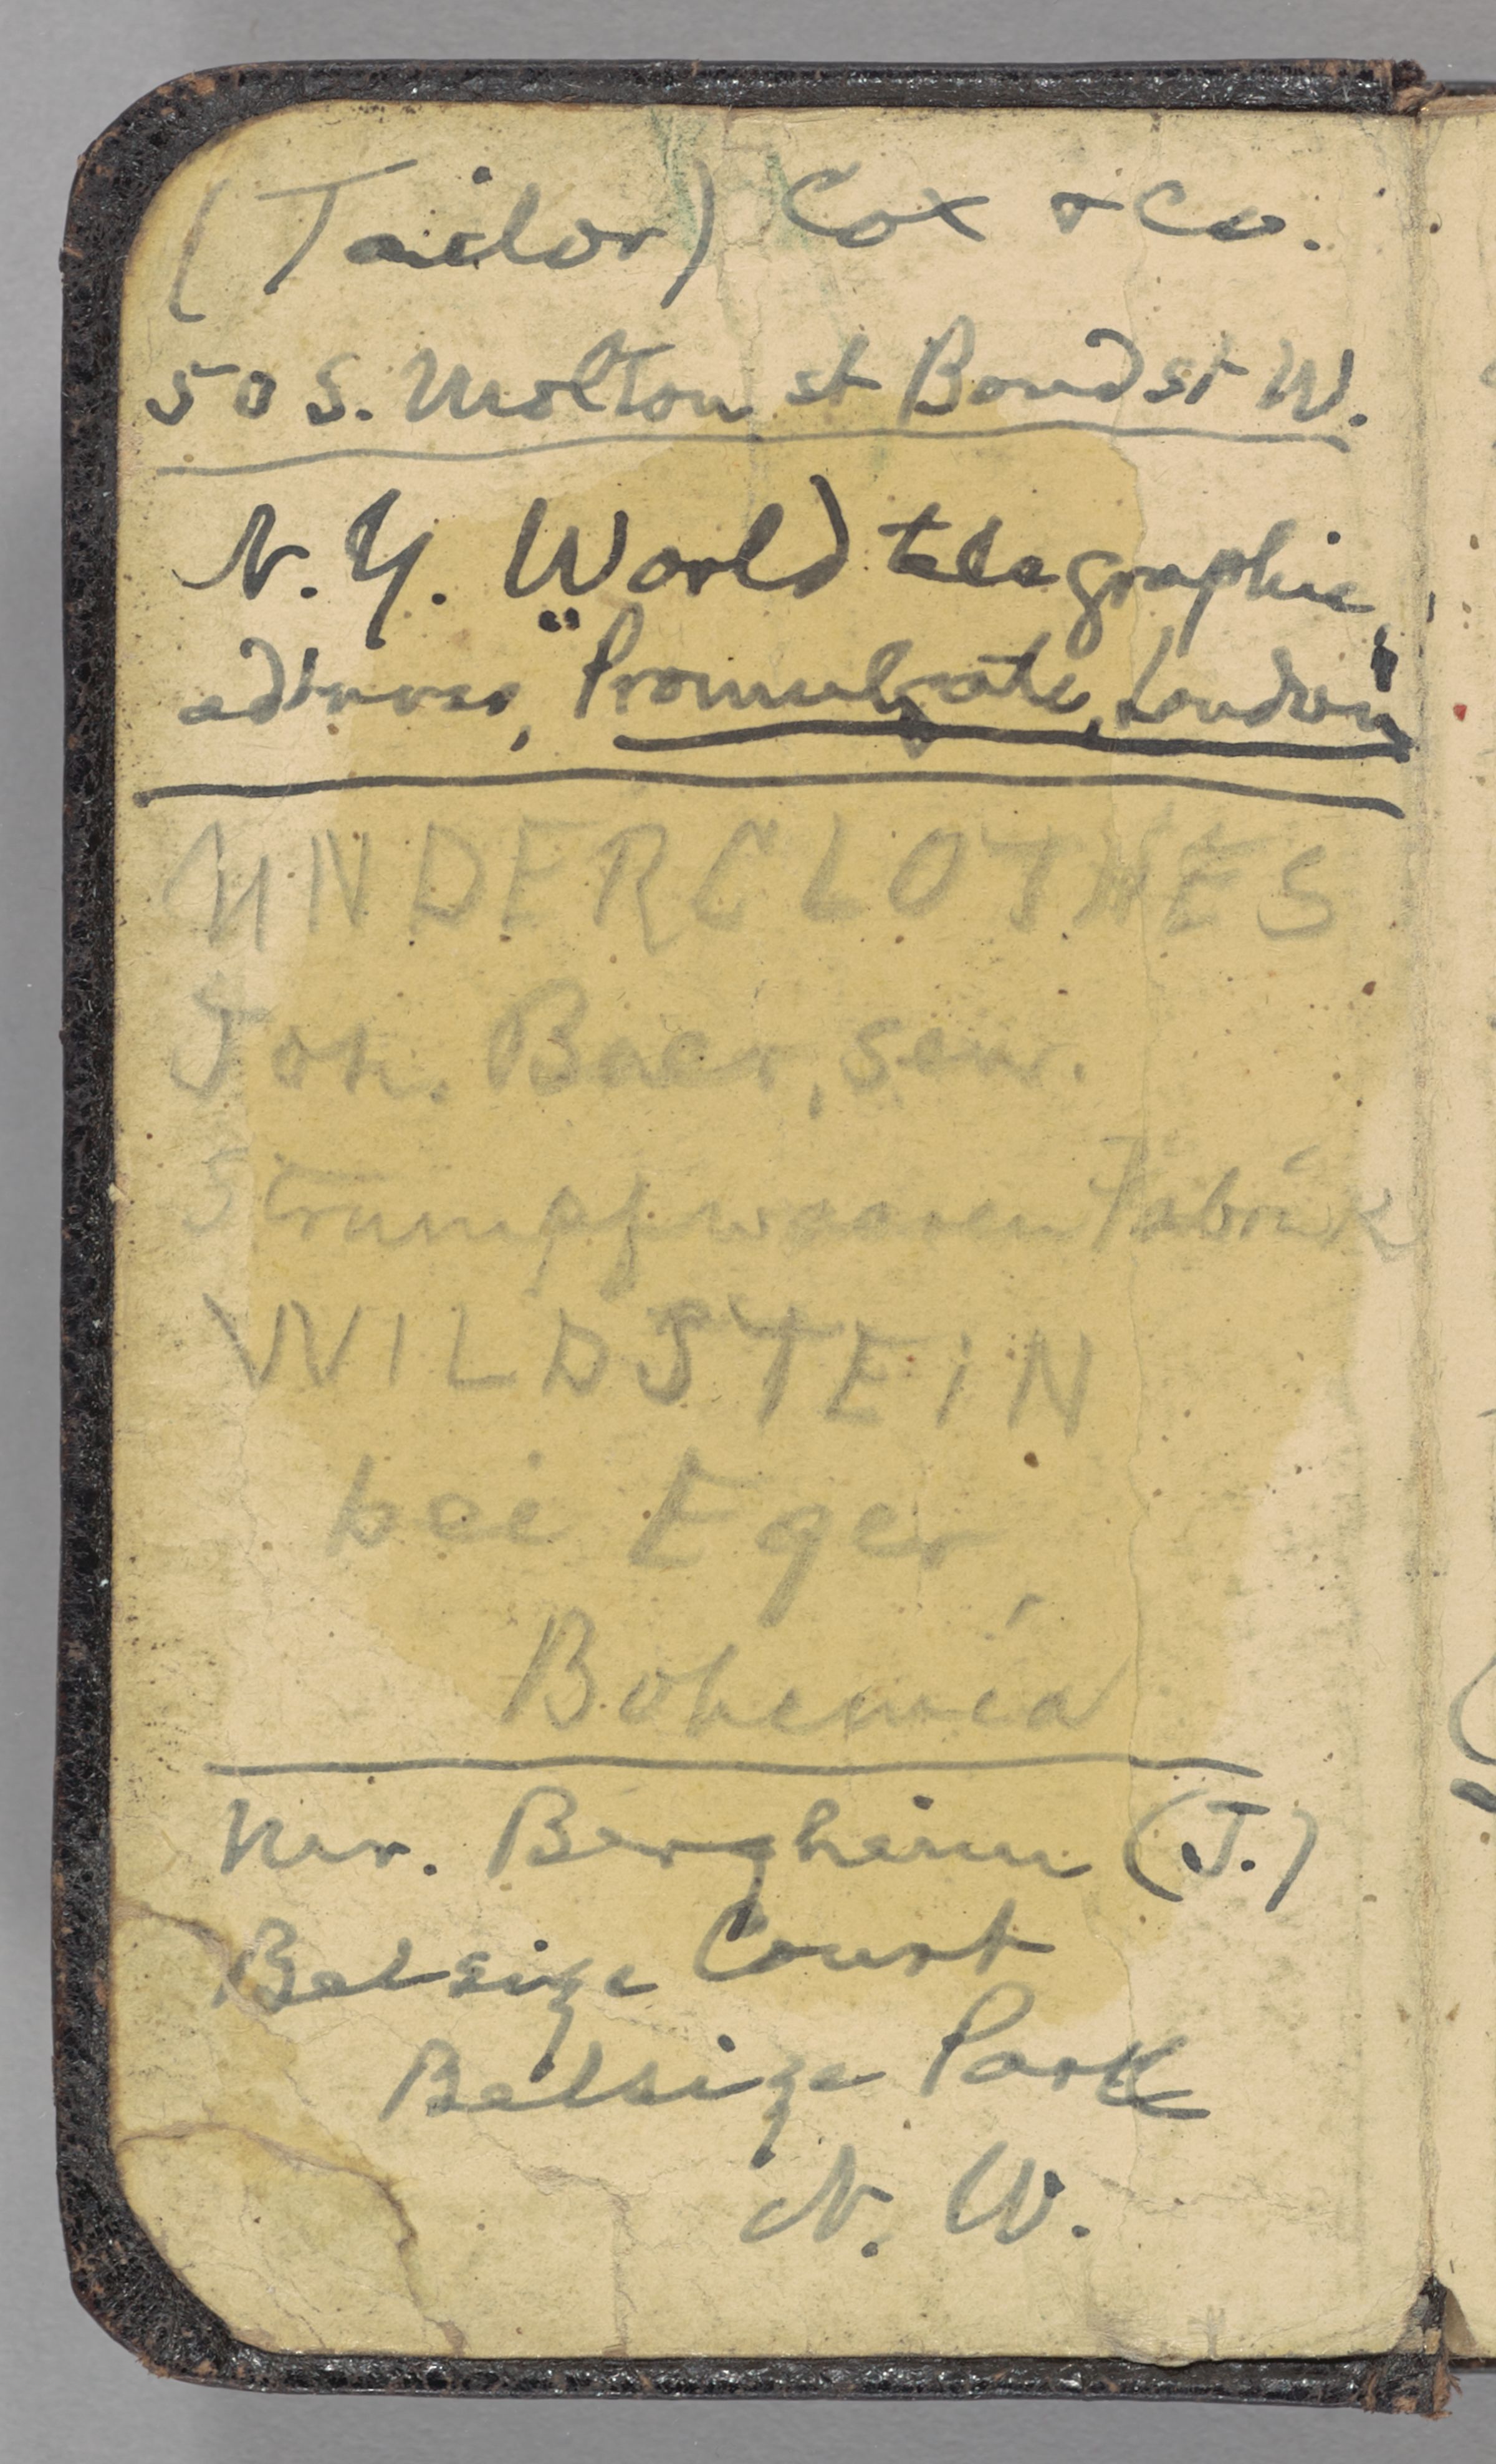 (Tailor) Cox & Co.
50 S. Molton st Bond st W.
N. Y. World telegraphic
address, "Promulgate, London"
UNDERCLOTHES
Joh. Baer, sen.
Strumpfwaaren Fabrik
WILDSTEIN
bei Eger,
Bohemia
Mr. Bergheim (J.)
Belsize Court
Belsize Park
N. W.